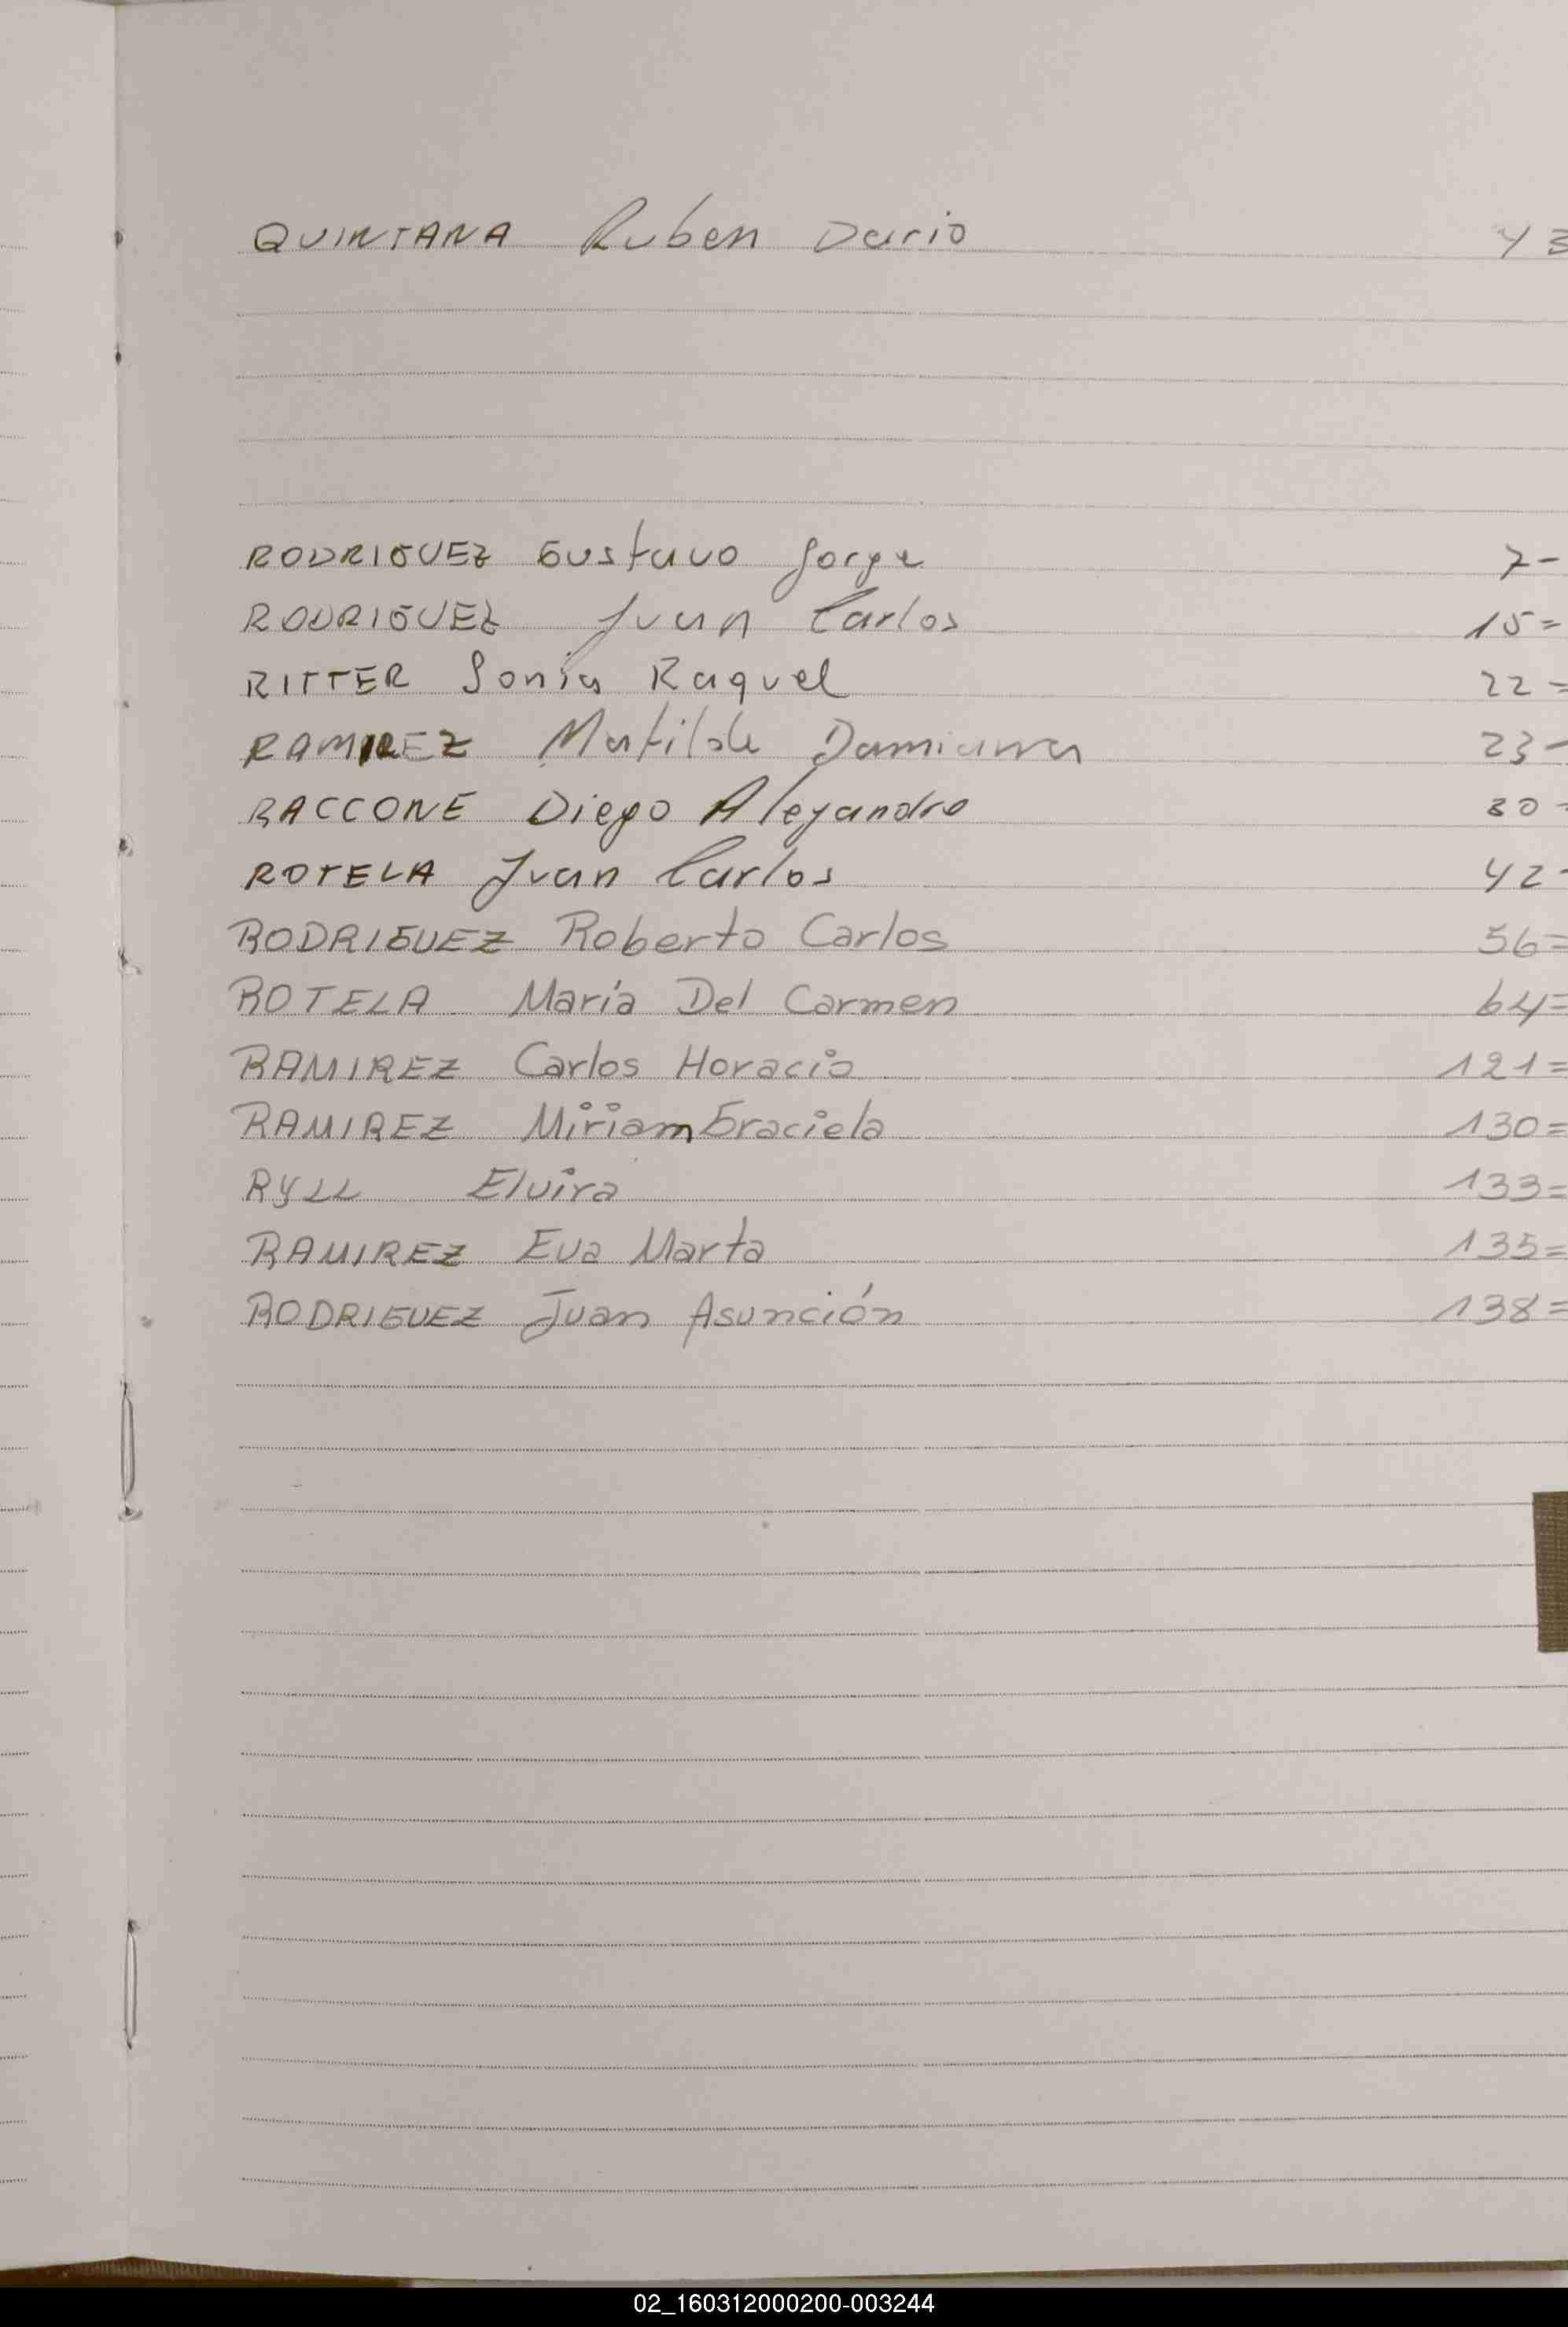 QUINTANA Ruben Dario 43
RODRIGUEZ Gustavo Jorge 7-
RODRIGUEZ Juan Carlos 15=
RITTER Sonia Raquel 22=
RAMIREZ Matilde Damiana 23-
RACCONE Diego Alejandro 30-
ROTELA Juan Carlos 42-
RODRIGUEZ Roberto Carlos 56=
ROTELA María Del Carmen 64=
RAMIREZ Carlos Horacio 121=
RAMIREZ Miriam Graciela 130=
RYLL Elvira 133=
RAMIREZ Eva Marta 135=
RODRIGUEZ Juan Asunción 138=
02_160312000200-003244